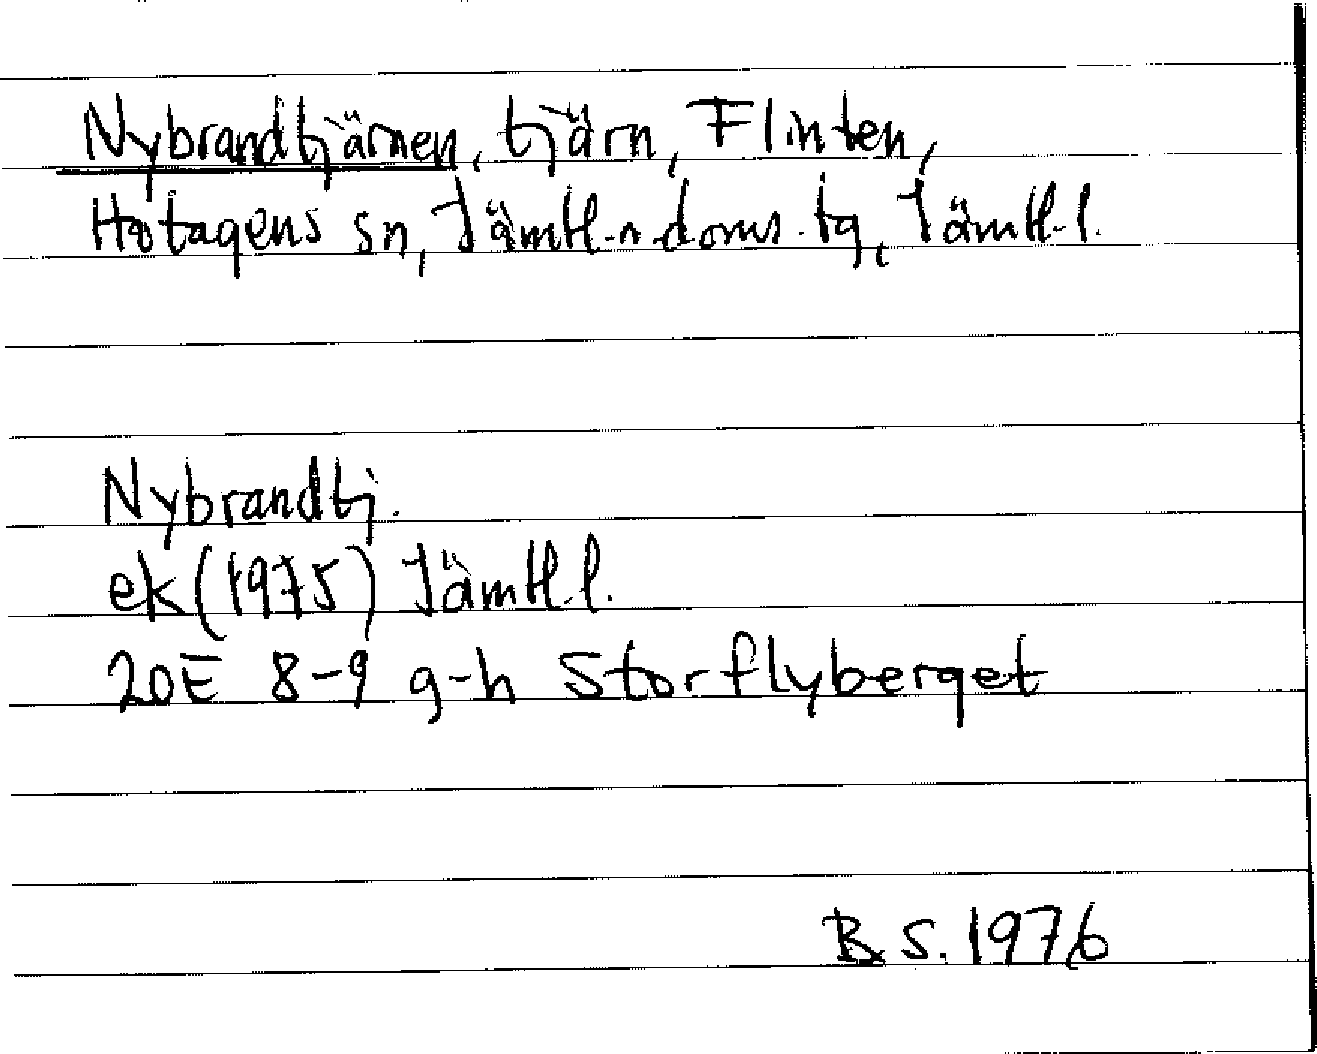 Nybrandtjärnen, tjärn, Flinten,
Hotagens sn, Jämtl. n. doms. tg, Jämtl. l.
Nybrandtj.
ek (1975) Jämtl. l.
20E 8-9 g-h Storflyberget
B.S. 1976